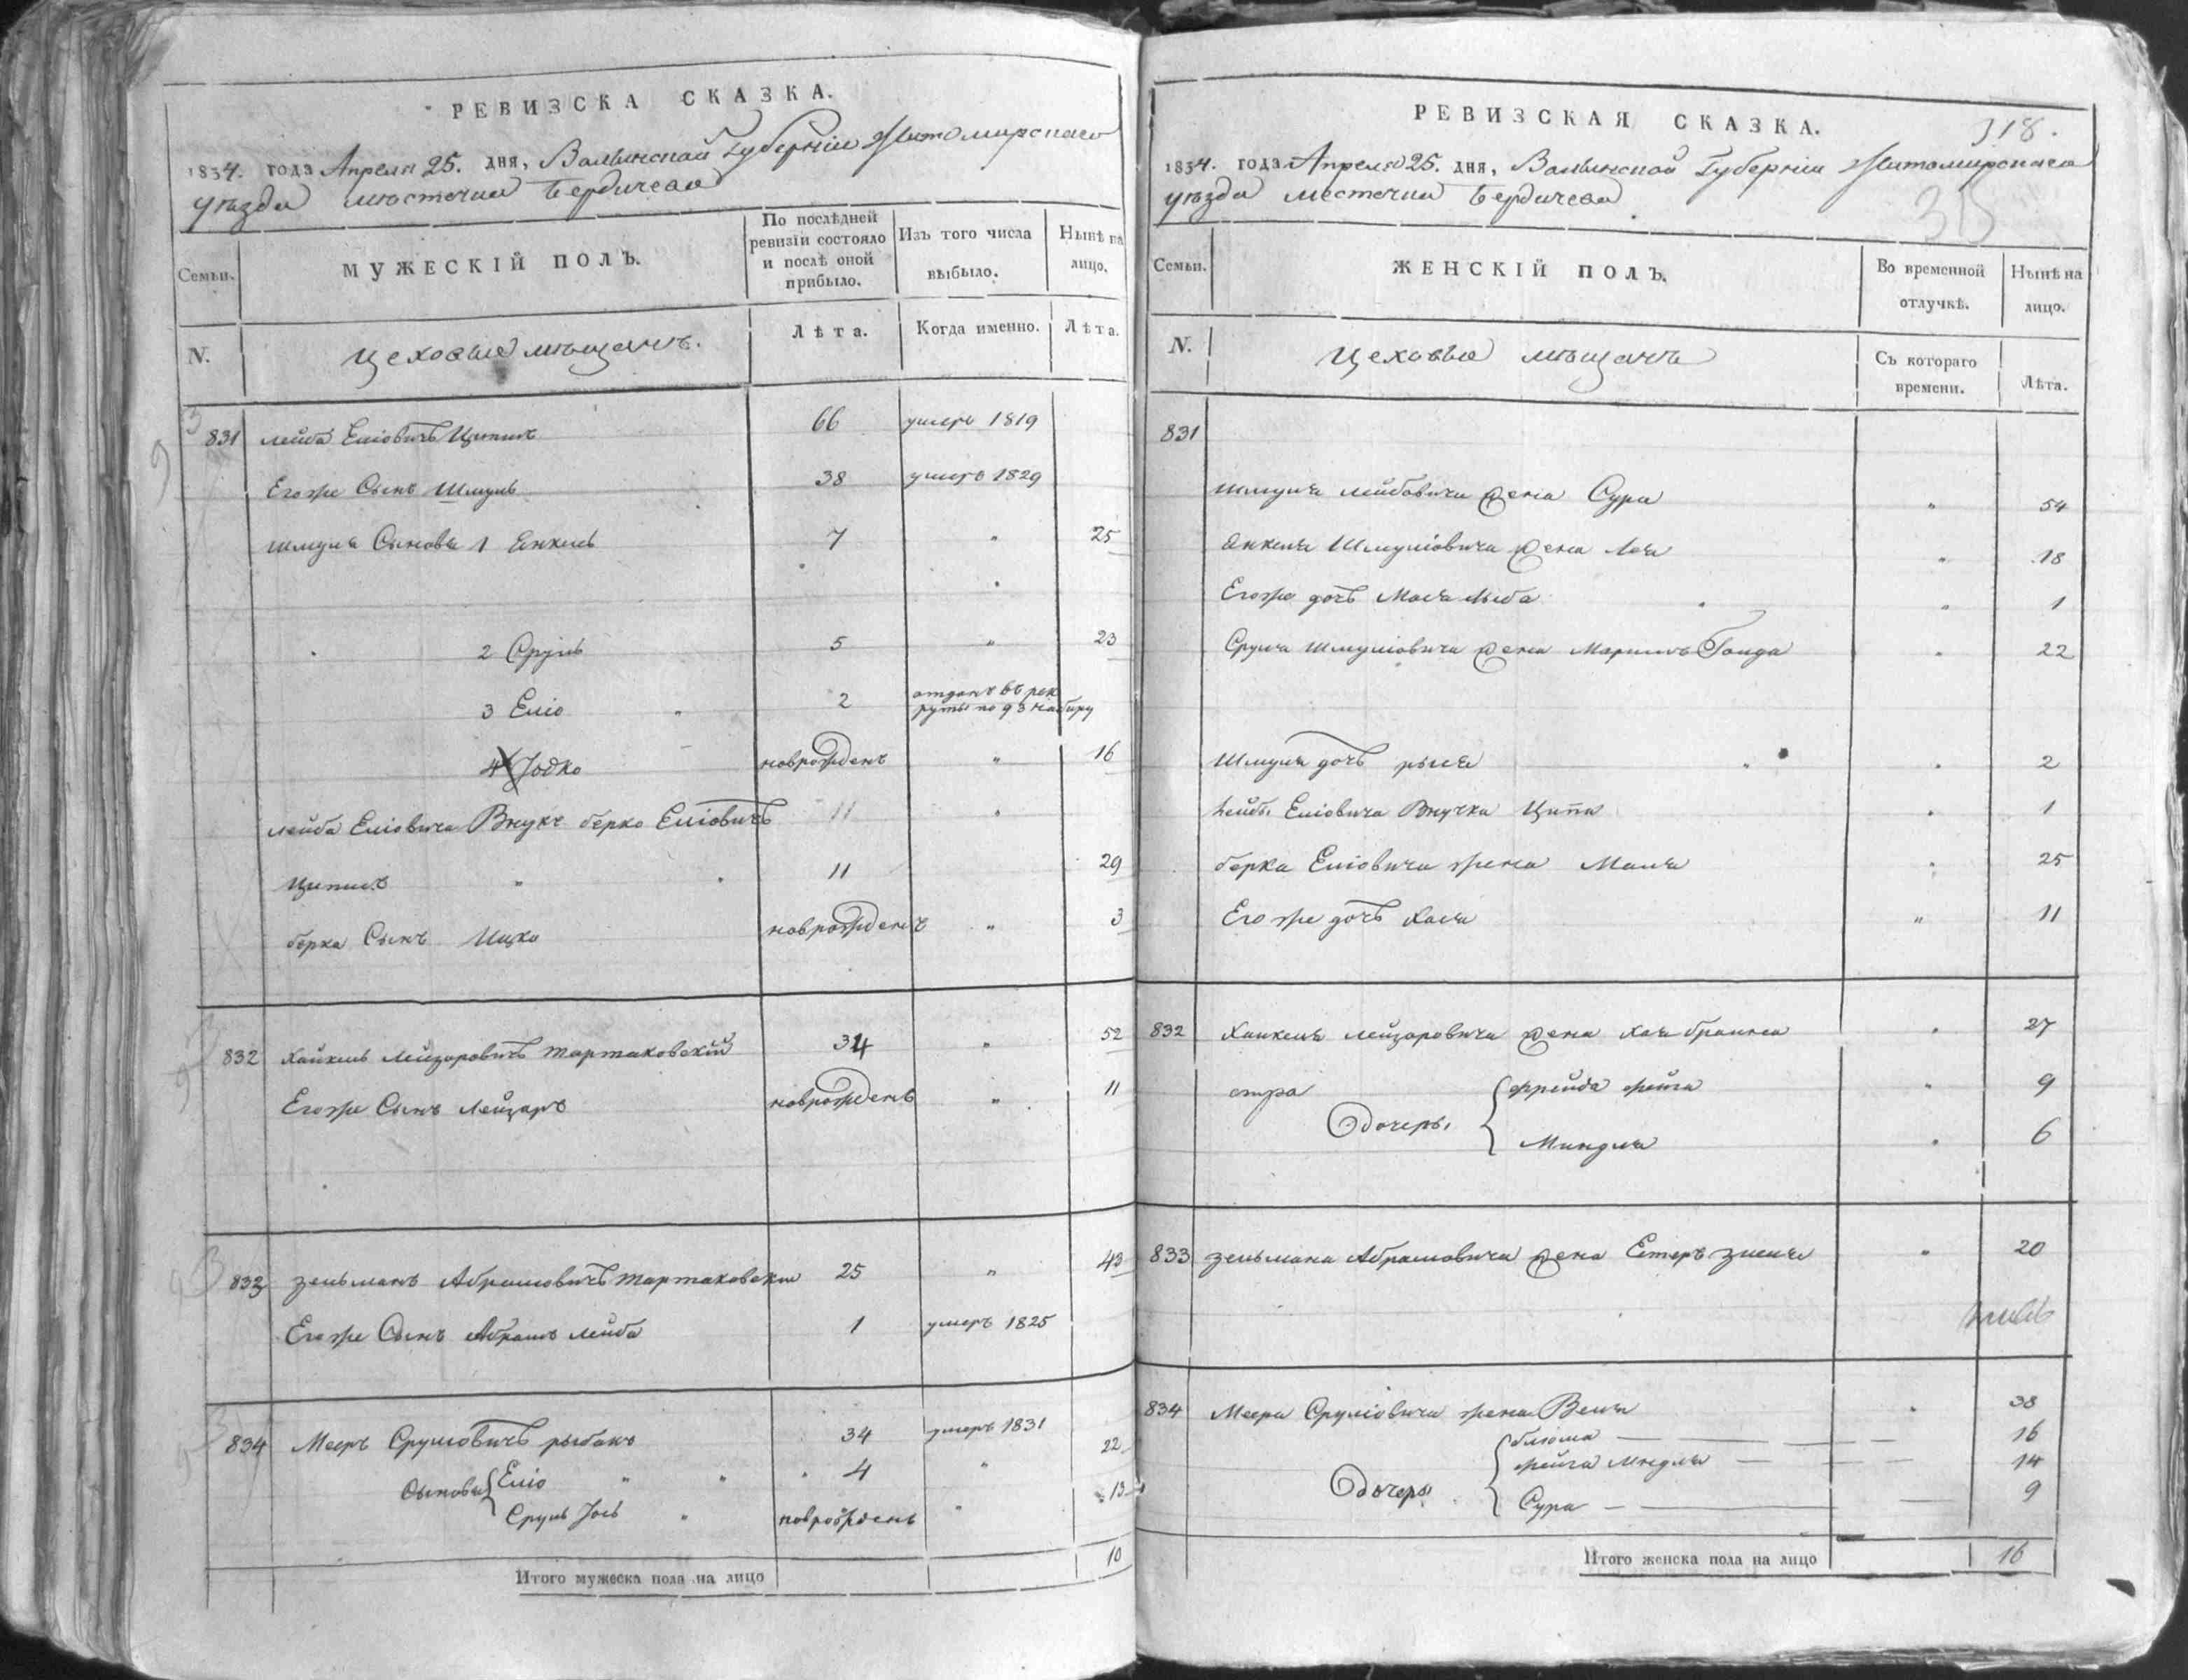 РЕВИЗСКА СКАЗКА.
1834. года Апреля 25. дня, Волынской Губерніи Житомирскаго
уѣзда мѣстечка Бердичева
Семьи.
МУЖЕСКІЙ ПОЛЪ.
По послѣдней
ревизіи состояло
и послѣ оной
прибыло.
Изъ того числа
выбыло.
Нынѣ на
лицо.
N.
Цеховые мѣщанъ.
Лѣта.
Когда именно.
Лѣта.
831 Лейба Еліовичъ Ципинъ 66 умеръ 1819
Егоже Сынъ Шмуль 38 умеръ 1829
Шмуля Сыновья 1 Янкель 7 " 25
2 Сруль 5 " 23
3 Еліо 2 отданъ въ рек
руты по 93 набиру
4 Іодко новрожденъ " 16
Лейба Еліовича Внукъ берко Еліовичъ 11 "
Ципинъ " 11 29
берка Сынъ Ицко новрожденъ " 3
832 Хайкель Лейзоровичъ Тартаковскій 34 " 52
Егоже Сынъ Лейзаръ новрожденъ " 11
833 Зельманъ Абрамовичъ Тартаковски 25 " 43
Егоже Сынъ Абрамъ Лейба 1 умеръ 1825
834 Мееръ Срулiовичъ рыбакъ 34 умеръ 1831
Сыновья Еліо " " 4 " 22
Сруль Іось " новрожденъ " 13
Итого мужеска пола на лицо 10
РЕВИЗСКАЯ СКАЗКА.
318.
315
1834. года Апреля 25. дня, Волынской Губерніи Житомирскаго
уѣзда местечка Бердичева
Семьи.
ЖЕНСКІЙ ПОЛЪ.
Во временной
отлучкѣ.
Нынѣ на
лицо.
N.
Цеховые мѣщанъ
Съ котораго
времени.
Лѣта.
831
Шмуля Лейбовича жена Сура " 54
Янкеля Шмуліовича жена Лея " 18
Егоже дочь Мася Лыба " 1
Сруля Шмуліовича жена Маримъ Гонда " 22
Шмуля дочь рыся " 2
Лейбы Еліовича Внучка Ципа " 1
берка Еліовича жена Маля " 25
Егоже дочь Хася " 11
832 Хайкеля Лейзаровича жена Хая браина " 27
фрейда фейга " 9
Дочеры
Миндля " 6
833 Зельмана Абрамовича жена Естеръ Зисля " 20
834 Меера Сруліовича жена Веля " 38
блюма — 16
фейга Миндля — 14
Дочеры
Сура — 9
Итого женска пола на лицо 16